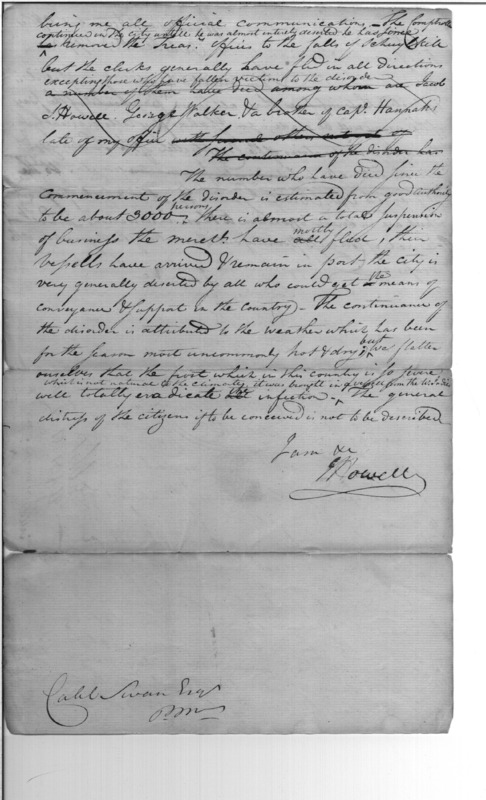 bring me all official communications, The Comptroll
continued in the city untill he was almost entirely deserted he has since
remove the Treas. Offices to the falls of Schuylkill
but the clerks generally have fled in all directions
excepting those who have fallen victims to the disorder
a number of them have died among whom are Jacob
S. Howell. George Walker & a brother of Capt. Hannah
late of my office
The continuance of the disorder has
The number who have died since the
Commencement of the disorder is estimated from good authority
persons
to be about 3000. There is almost a total suspension
mostly
of business the merchts. have all fled, then
vessells have arrived & remain in port the city is
the
very generally deserted by all who could get a means of
conveyance & support in the country - The continuance of
the disorder is attributed to the weather which has been
but
for the season most uncommonly hot & dry, we flatter
ourselves that the frost which in this country is so severe
which is not natural to the climate, it was brought in a vessel from the
will totally eradicate the infection. The general
distress of the citizens if to be conceived is not to be described
I am &c
JHowell
Caleb Swan Esqr
P.M.